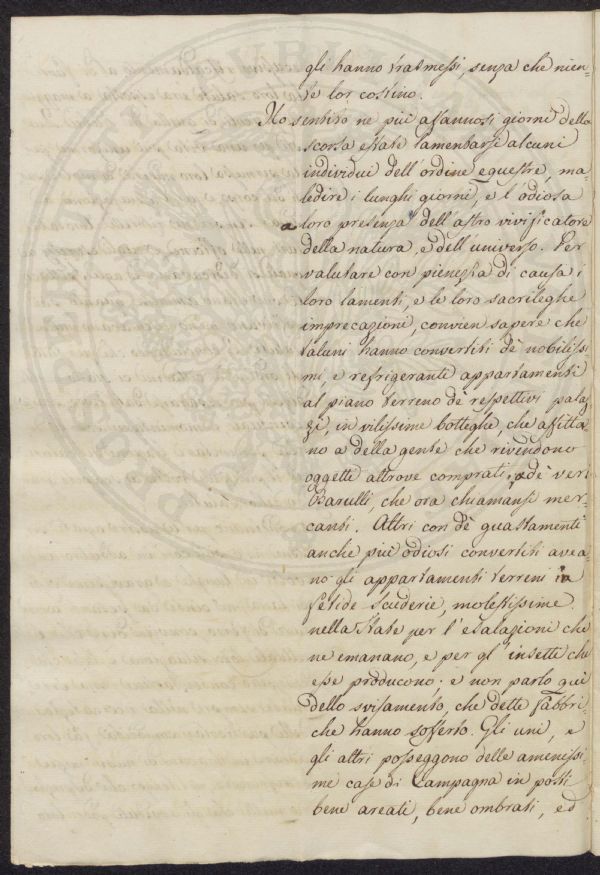 gli hanno trasmessi, senza che nien-
te lor costino.
Ho sentito ne più affannosi giorni della
scorsa estate lamentarsi alcuni
individui dell'ordine equestre, ma
ledire i lunghi giorni, e l'odiosa
a loro presenza dell'astro vivificatore
della natura, e dell'universo. Per
valutare con pienezza di causa i
loro lamenti, e le loro sacrileghe
imprecazioni, convien sapere che
taluni hanno convertiti dè nobilissi
mi, e refrigerante appartamenti
al piano terreno dè respettivi palaz
zi, in vilissime botteghe, che affitta
no a della gente che rivendono
oggetti altrove comprati, dè veri
Barulli, che ora chiamansi mer-
canti. Altri con dè guastamenti
anche più odiosi convertiti avea
no gli appartamenti terreni in
fetide scuderie, molestissime
nella state per l'esalazioni che
ne emanano, e per gl'insetti che
esse producono: e non parlo quì
dello svisamento, che dette fabbri-
che hanno sofferto. Gli uni, e
gli altri posseggono delle amenissi
me case di Campagna in posti
bene areati, bene ombrati, ed